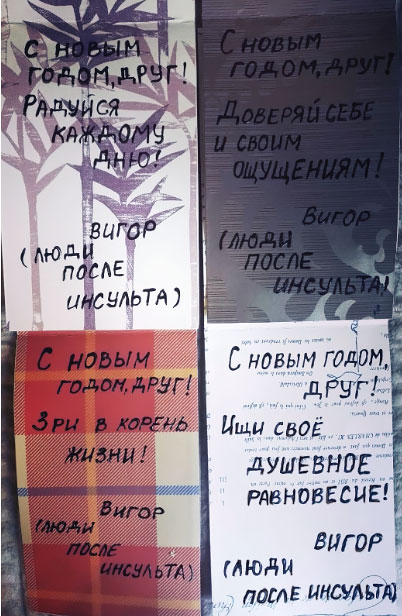 С НОВЫМ
ГОДОМ, ДРУГ!
РАДУЙСЯ
КАЖДОМУ
ДНЮ!
ВИГОР
(ЛЮДИ
ПОСЛЕ
ИНСУЛЬТА)
С НОВЫМ
ГОДОМ, ДРУГ!
ДОВЕРЯЙ СЕБЕ
И СВОИМ
ОЩУЩЕНИЯМ!
ВИГОР
(ЛЮДИ
ПОСЛЕ
ИНСУЛЬТА)
С НОВЫМ
ГОДОМ, ДРУГ!
ЗРИ В КОРЕНЬ
ЖИЗНИ!
ВИГОР
(ЛЮДИ
ПОСЛЕ
ИНСУЛЬТА)
С НОВЫМ ГОДОМ,
ДРУГ!
ИЩИ СВОЁ
ДУШЕВНОЕ
РАВНОВЕСИЕ!
ВИГОР
(ЛЮДИ
ПОСЛЕ ИНСУЛЬТА)